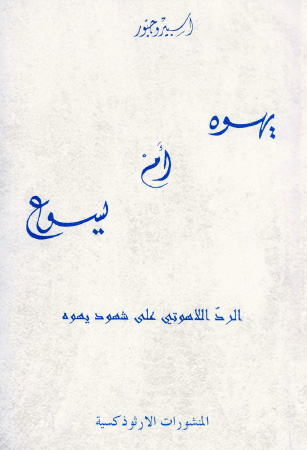 اسبيرو جبور
يهوه
أم
يسوع
الردّ اللاهوتي على شهود يهوه
المنشورات الارثوذكسية